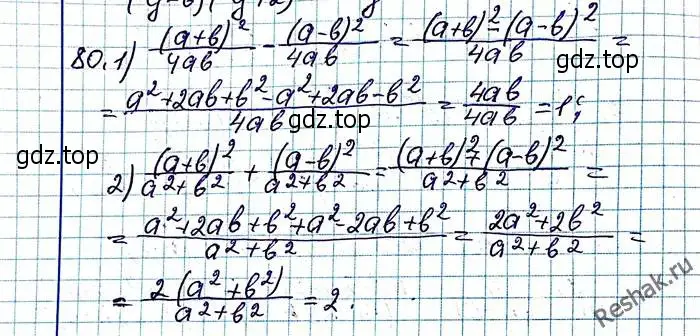 80.1) (a+b)²/4ab - (a-b)²/4ab = (a+b)²-(a-b)²/4ab =
gdz.top
= a²+2ab+b²-a²+2ab-b²/4ab = 4ab/4ab = 1;
gdz.top
gdz.top
2) (a+b)²/a²+b² + (a-b)²/a²+b² = (a+b)²+(a-b)²/a²+b² =
= a²+2ab+b²+a²-2ab+b²/a²+b² = 2a²+2b²/a²+b² =
= 2(a²+b²)/a²+b² = 2.
gdz.top
gdz.top
Reshak.ru